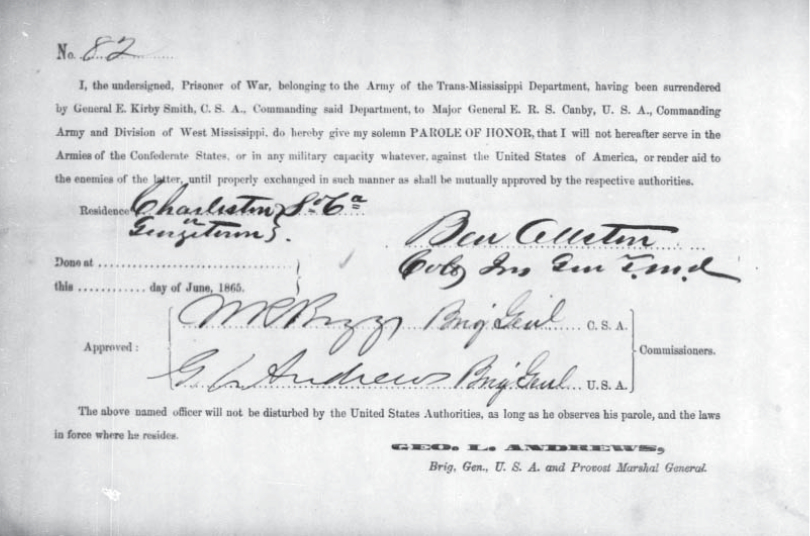 No. 82
I, the undersigned, Prisoner of War, belonging to the Army of the Trans-Mississippi Department, having been surrendered
by General E. Kirby Smith, C. S. A., Commanding said Department, to Major General E. R. S. Canby, U. S. A., Commanding
Army and Division of West Mississippi, do hereby give my solemn PAROLE OF HONOR, that I will not hereafter serve in the
Armies of the Confederate States, or in any military capacity whatever, against the United States of America, or render aid to
the enemies of the latter, until properly exchanged in such manner as shall be mutually approved by the respective authorities.
Residence Charleston So Ca
or Georgetown
Ben Allston
Col & Ins Gen T.M.D
Done at
this ............ day of June, 1865.
Approved :
Brig Genl C. S. A.
Commissioners.
G L Andrews Brig Genl U. S. A.
The above named officer will not be disturbed by the United States Authorities, as long as he observes his parole, and the laws
in force where he resides.
GEO. L. ANDREWS,
Brig. Gen., U. S. A. and Provost Marshal General.